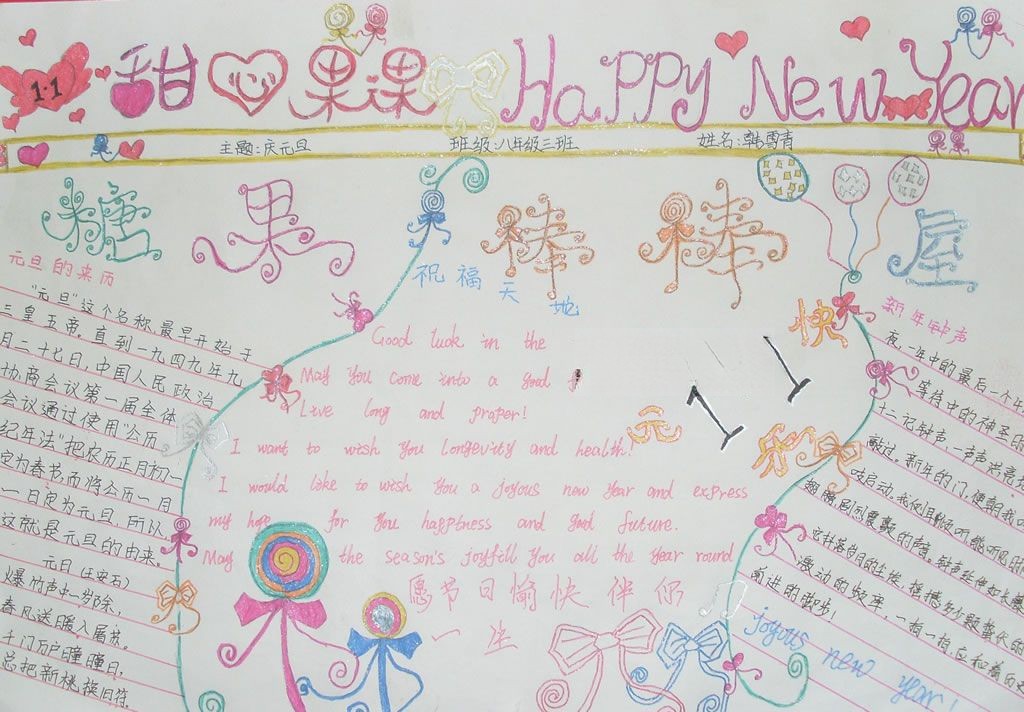 1·1 甜心果课 Happy New Year
主题:庆元旦 班级:八年级三班 姓名:韩雪青
糖果棒棒屋
元旦的来历
"元旦"这个名称,最早开始于
三皇五帝。直到一九四九年九
月二十七日,中国人民政治
协商会议第一届全体
会议通过使用"公历
纪年法"把农历正月初一
定为春节,而将公历一月
一日定为元旦,所以
这就是元旦的由来。
元日(王安石)
爆竹声中一岁除,
春风送暖入屠苏。
千门万户曈曈日,
总把新桃换旧符。
祝福天地
Good luck in the
May You come into a good
Live long and proper!
I want to wish You longevity and health!
I would like to wish You a joyous new Year and express
my hope for You happtness and good future.
May the season's joyfill You all the Year round
愿节日愉快伴你
一生
快
元
乐
1
1
新年钟声
夜,一年中的最后一个
等待中的神圣
十二记钟声,一声声
敲过。新年的门,便朝我
启动,我们
的声音。钟声
漫动的
前进的脚步!
joyous new year!